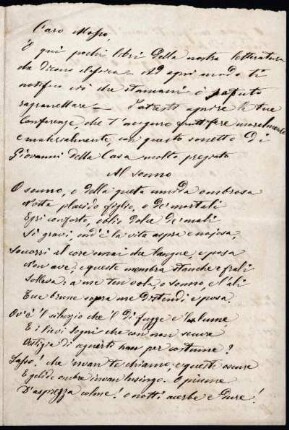 Caro Masso,
E qui pochi libri della nostra letteratura
da Ad ogni modo ti
notifico ciò che stamani è
Potresti aprire le tue
Conferenze, che t'auguro
e con questo sonetto di
Giovanni della Casa molto pregiato
Al sonno
O sonno, o della queta umida ombrosa
Notte placido figlio, o de' mortali
Egri conforto, oblio dolce de' mali
Sì gravi, ond'è la vita aspra e nojosa,
Soccorri al core omai che langue, e posa
Non ave, e queste membra stanche e frali
Solleva: a me ten vola, o sonno, e l'ali
Tue brune sopra me distendi e posa.
Ov'è il silenzio che 'l dì fugge e 'l lume,
E i lievi sogni che con non secure
Vestigia di seguirti han per costume?
Lasso! che invan te chiamo, e queste oscure
E gelide ombre invan lusingo. O piume
D'asprezza colme! o notti acerbe e dure!